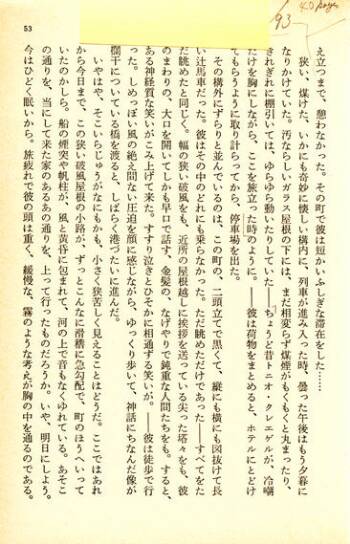 53
93
40 pages
え立つまで、憩わなかった。その町で彼は短かいふしぎな滞在をした……
狭い、煤けた、いかにも奇妙に懐しい構内に、列車が進み入った時、曇った午後はもう夕暮に
なりかけていた。汚ならしいガラス屋根の下には、まだ相変らず煤煙がもくもくと丸まったり、
きれぎれに棚引いては、ゆらゆら動いたりしていた――ちょうど昔トニオ・クレエゲルが、冷嘲
だけを胸にしながら、ここを旅立った時のように。――彼は荷物をまとめると、ホテルにとどけ
てもらうように取り計らってから、停車場を出た。
その構外にずらりと並んでいるのは、この町の、二頭立てで黒くて、縦にも横にも図抜けて長
い辻馬車だった。彼はその中のどれにも乗らなかった。ただ眺めただけであった――すべてをた
だ眺めたと同じく。幅の狭い破風をも、近所の屋根越しに挨拶を送っている尖った塔々をも、彼
のまわりの、大口を開いてしかも早口で話す、金髪の、なげやりで鈍重な人間たちをも。すると、
ある神経質な笑いがこみ上げて来た。すすり泣きとひそかに相通ずる笑いが。――彼は徒歩で行
った。しめっぽい風の絶え間ない圧迫を顔に感じながら、ゆっくり歩いて、神話にちなんだ像が
欄干についている橋を渡ると、しばらく港づたいに進んだ。
いやはや、そこいらじゅうがなにもかも、小さく狭苦しく見えることはどうだ。ここではあれ
から今日まで、この狭い破風屋根の小路が、ずっとこんなに滑稽に急勾配で、町のほうへいって
いたのかしら。船の煙突や帆柱が、風と黄昏に包まれて、河の上で音もなくゆれている。あそこ
の通りを、当にして来た家のあるあの通りを、上って行ったものだろうか。いや、明日にしよう。
今はひどく眠いから。旅疲れで彼の頭は重く、緩慢な、霧のような考えが胸の中を通るのである。